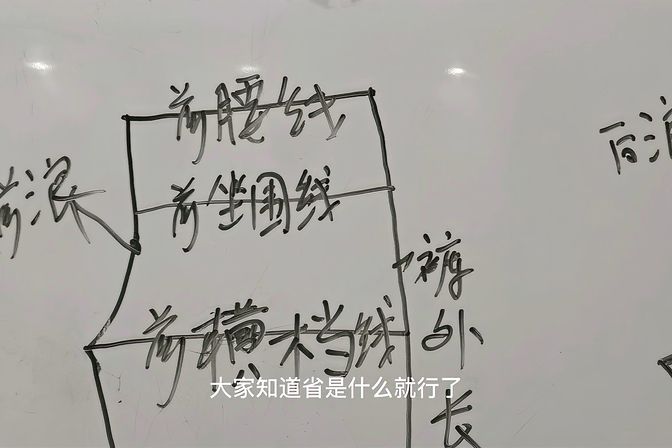 前腰线
前坐围线
前浪
后浪
前横档线
裤外长
大家知道省是什么就行了